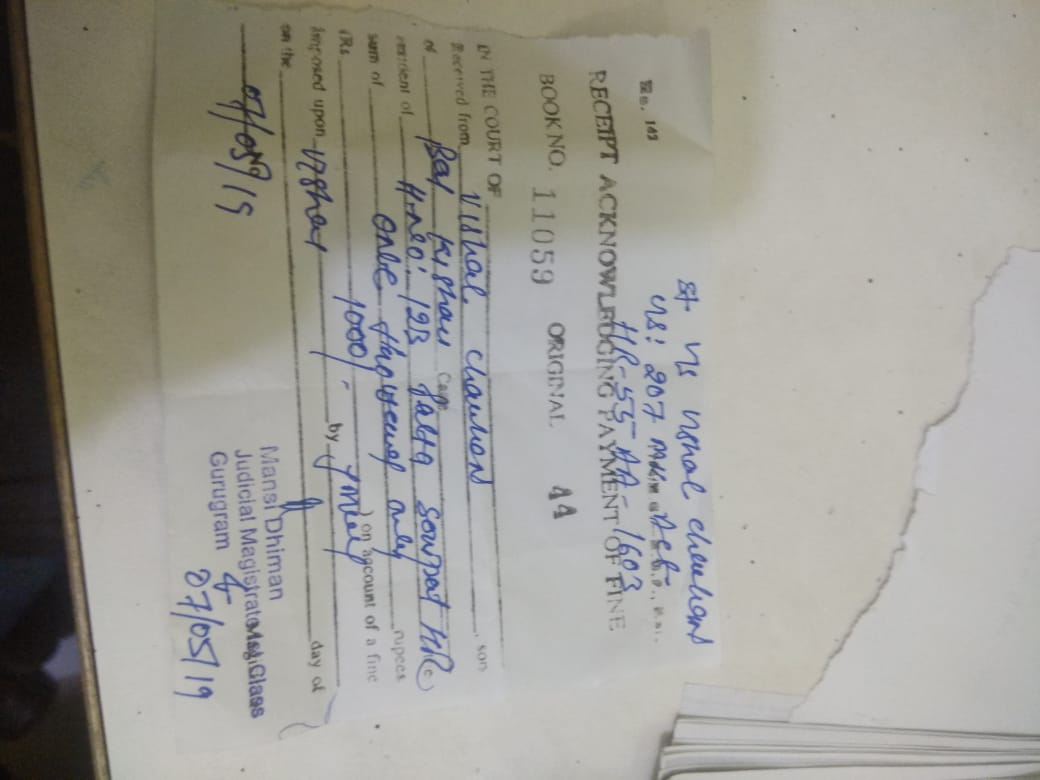 st vs vishal chauhan
us: 207 M.V. Act
HR-55-AA-1603
RECEIPT ACKNOWLEDGING PAYMENT OF FINE
BOOK NO. 11059 ORIGINAL 44
IN THE COURT OF
Received from Vishal chauhan son
of Bal Kishan Caste
resident of H.no: 123 Sonipat HR
sum of one thousand only rupees
(Rs 1000/- ) on account of a fine
imposed upon Vishal by
on the day of
07/05/19
Mansi Dhiman
Judicial Magistrate Ist Class
Gurugram
07/05/19